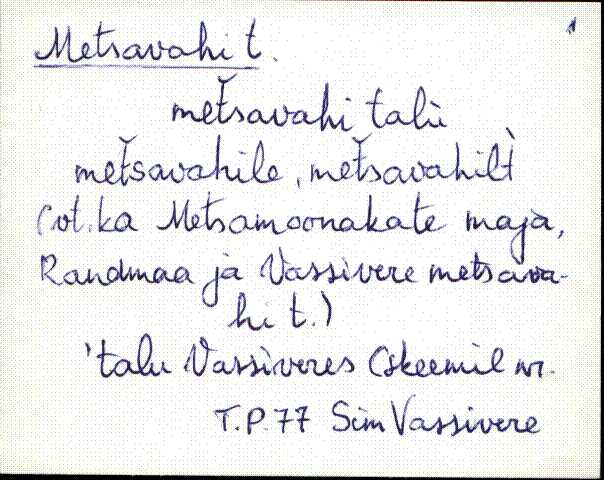 1
Metsavahi t.
metšavahi talù
metšavahile, metšavahilt̀
(vt. ka Metsamoonakate maja,
Randmaa ja Vassivere metsava-
hi t.)
'talu Vassiveres (skeemil nr.
T.P. 77 Sim Vassivere